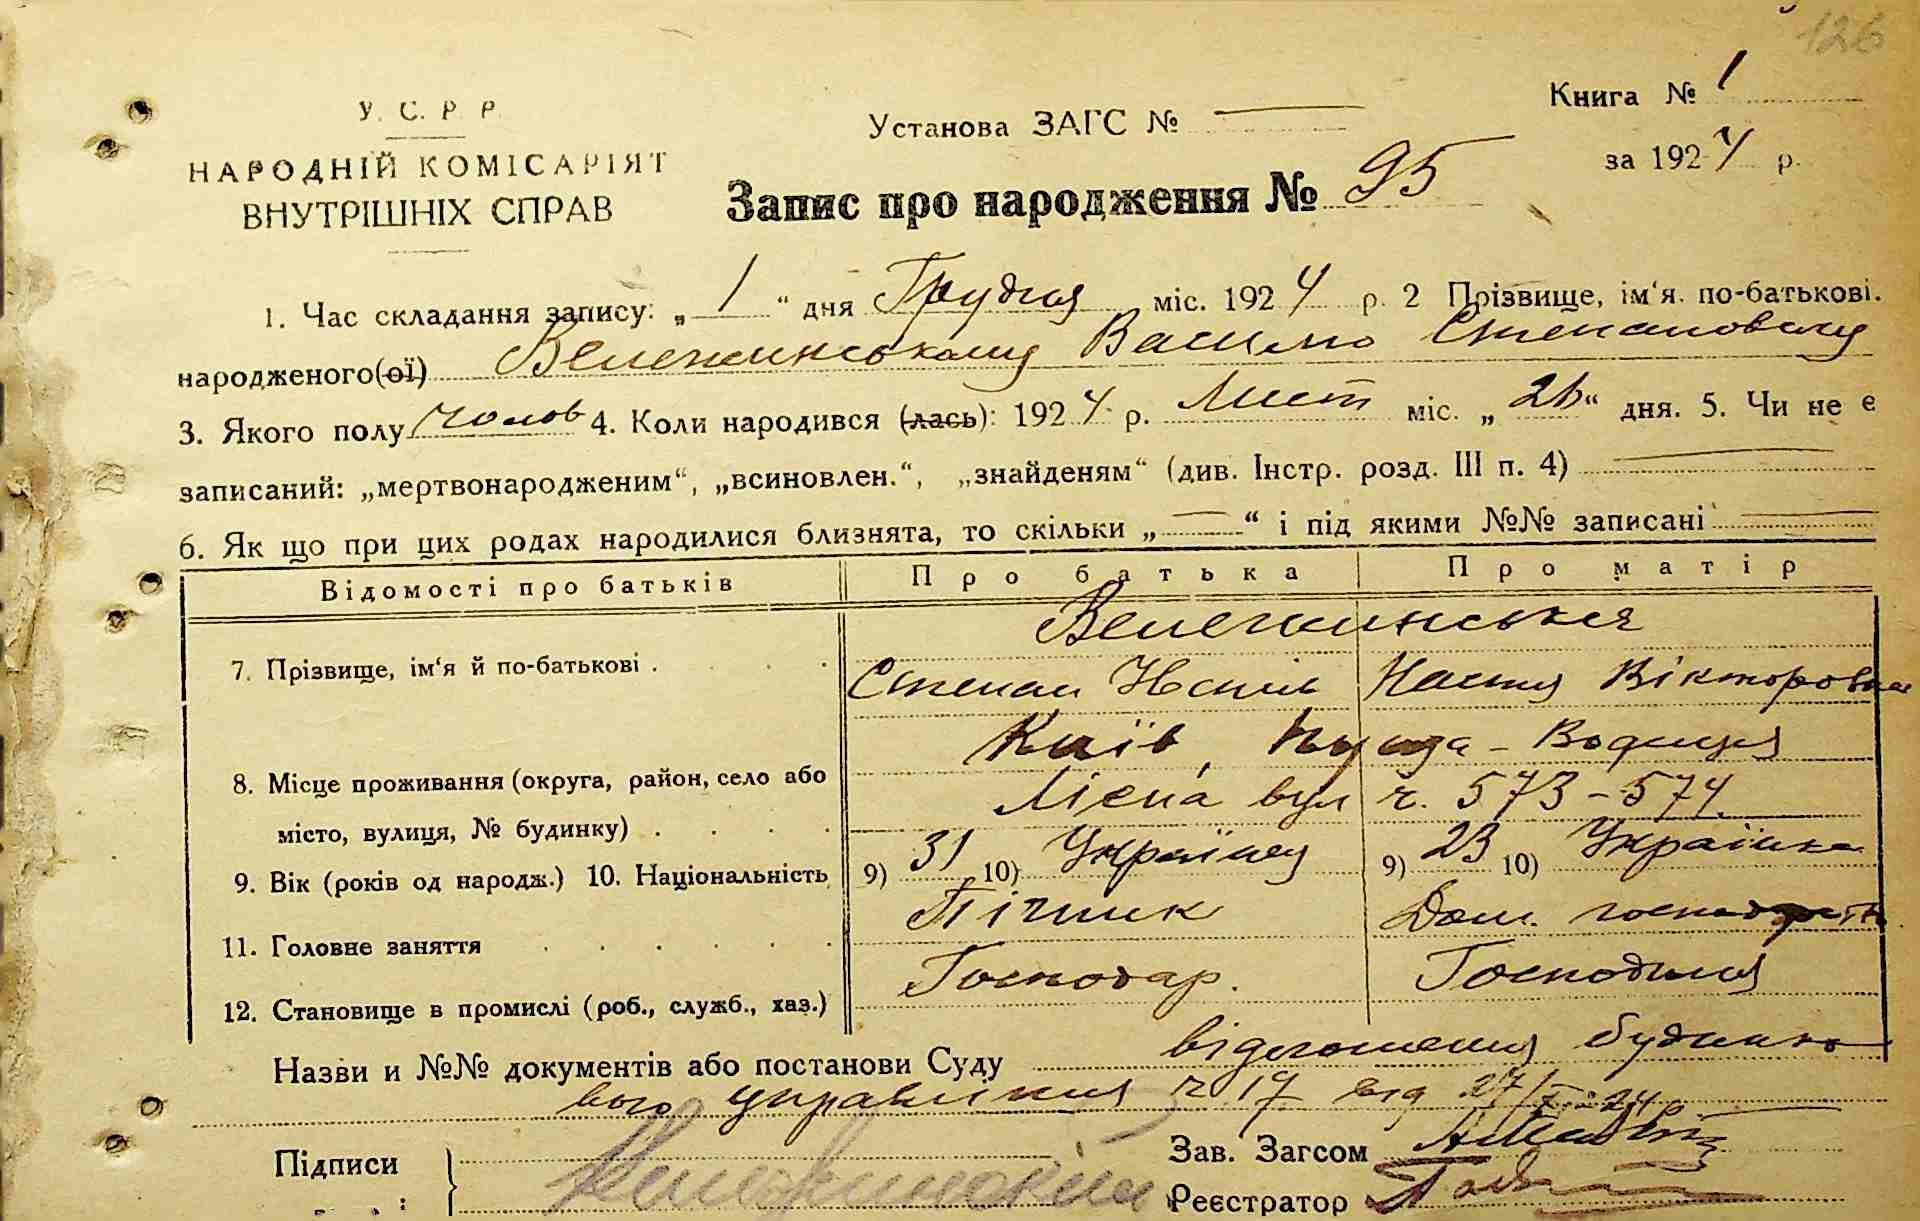 126
У. С. Р. Р.
НАРОДНІЙ КОМІСАРІЯТ
ВНУТРІШНІХ СПРАВ
Установа ЗАГС №
Книга № 1
за 1924 р.
Запис про народження № 95
1. Час складання запису: „1“ дня Грудня міс. 1924 р. 2 Прізвище, ім'я. по-батькові.
народженого(ої) Василю Степановому
3. Якого полу чолов 4. Коли народився (лась): 1924 р. Лист міс. „26“ дня. 5. Чи не є
записаний: „мертвонародженим“, „всиновлен.“, „знайденям“ (див. Інстр. розд. III п. 4)
6. Як що при цих родах народилися близнята, то скільки „—“ і під якими №№ записані
Відомості про батьків Про батька Про матір
7. Прізвище, ім'я й по-батькові .
Степан Настя Вікторовна
Київ, Пуща-Водиця
8. Місце проживання (округа, район, село або
місто, вулиця, № будинку) . Лісна вул ч. 573-574.
9. Вік (років од народж.) 10. Національність 9) 31 10) Українец 9) 23 10) Українка
11. Головне заняття Пічник Дом. господарств
12. Становище в промислі (роб., служб., хаз.) Господар. Господиня
Назви и №№ документів або постанови Суду відношення будинко
вого управління ч 17 від 27/
Підписи
Зав. Загсом
Реєстратор